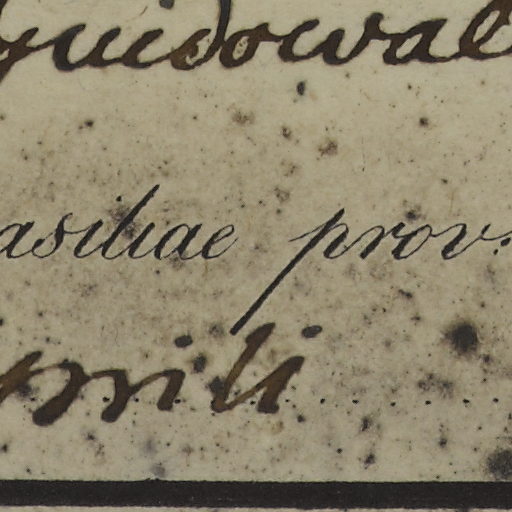 guidowal
asiliae prov.
mili